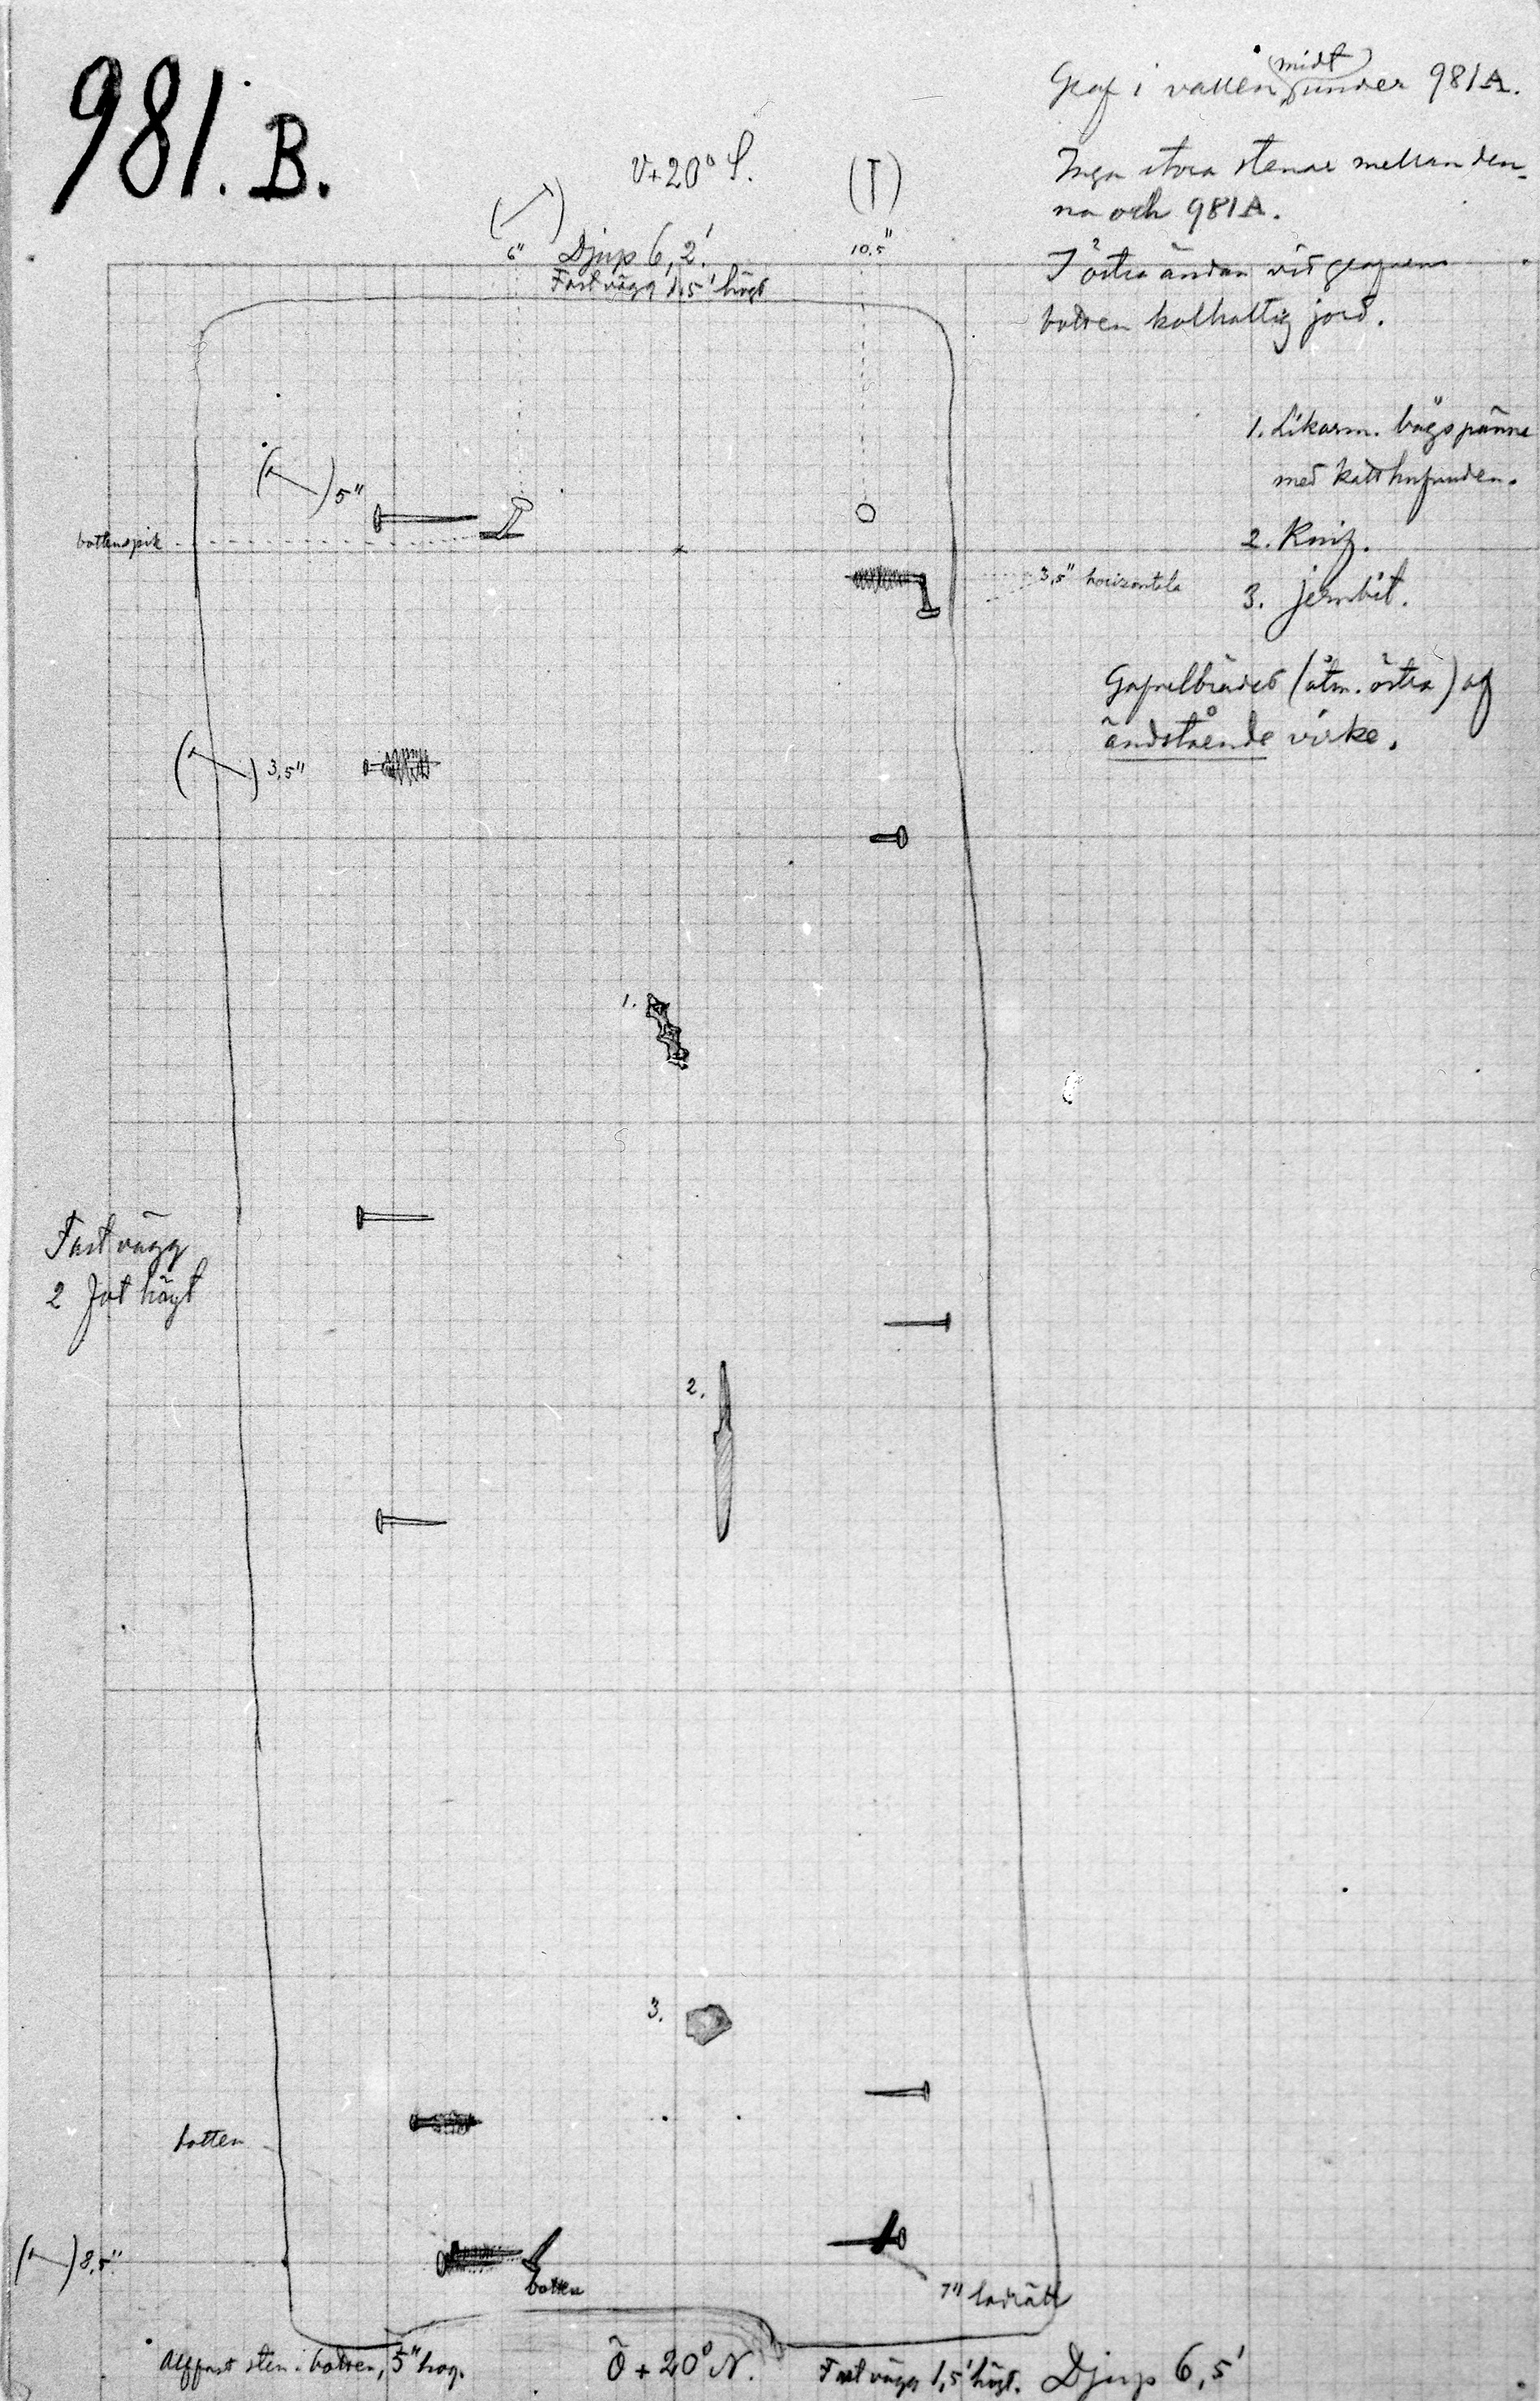 981. B.
Graf i vallen midt under 981A.
Inga stora stenar mellan den-
na och 981A.
I östra ändan vid grafvens
botten kolhaltig jord.
V+20° S.
(T)
6"
Djup 6,2'
10,5"
Fast vägg 1,5' högt
1. Likarm. bågspänne
med katthufvuden.
5"
bottenspik
2. Knif.
3,5" horizontala
3. jernbit.
Gafvelbrädet (åtm. östra) af
ändstående virke.
3,5"
1.
Fast vägg
2 fot högt
2.
3.
botten
8,5"
botten
7" lodrätt
sten i botten, 5" hög.
Ö+20° N.
Fast vägg 1,5' högt.
Djup 6,5'